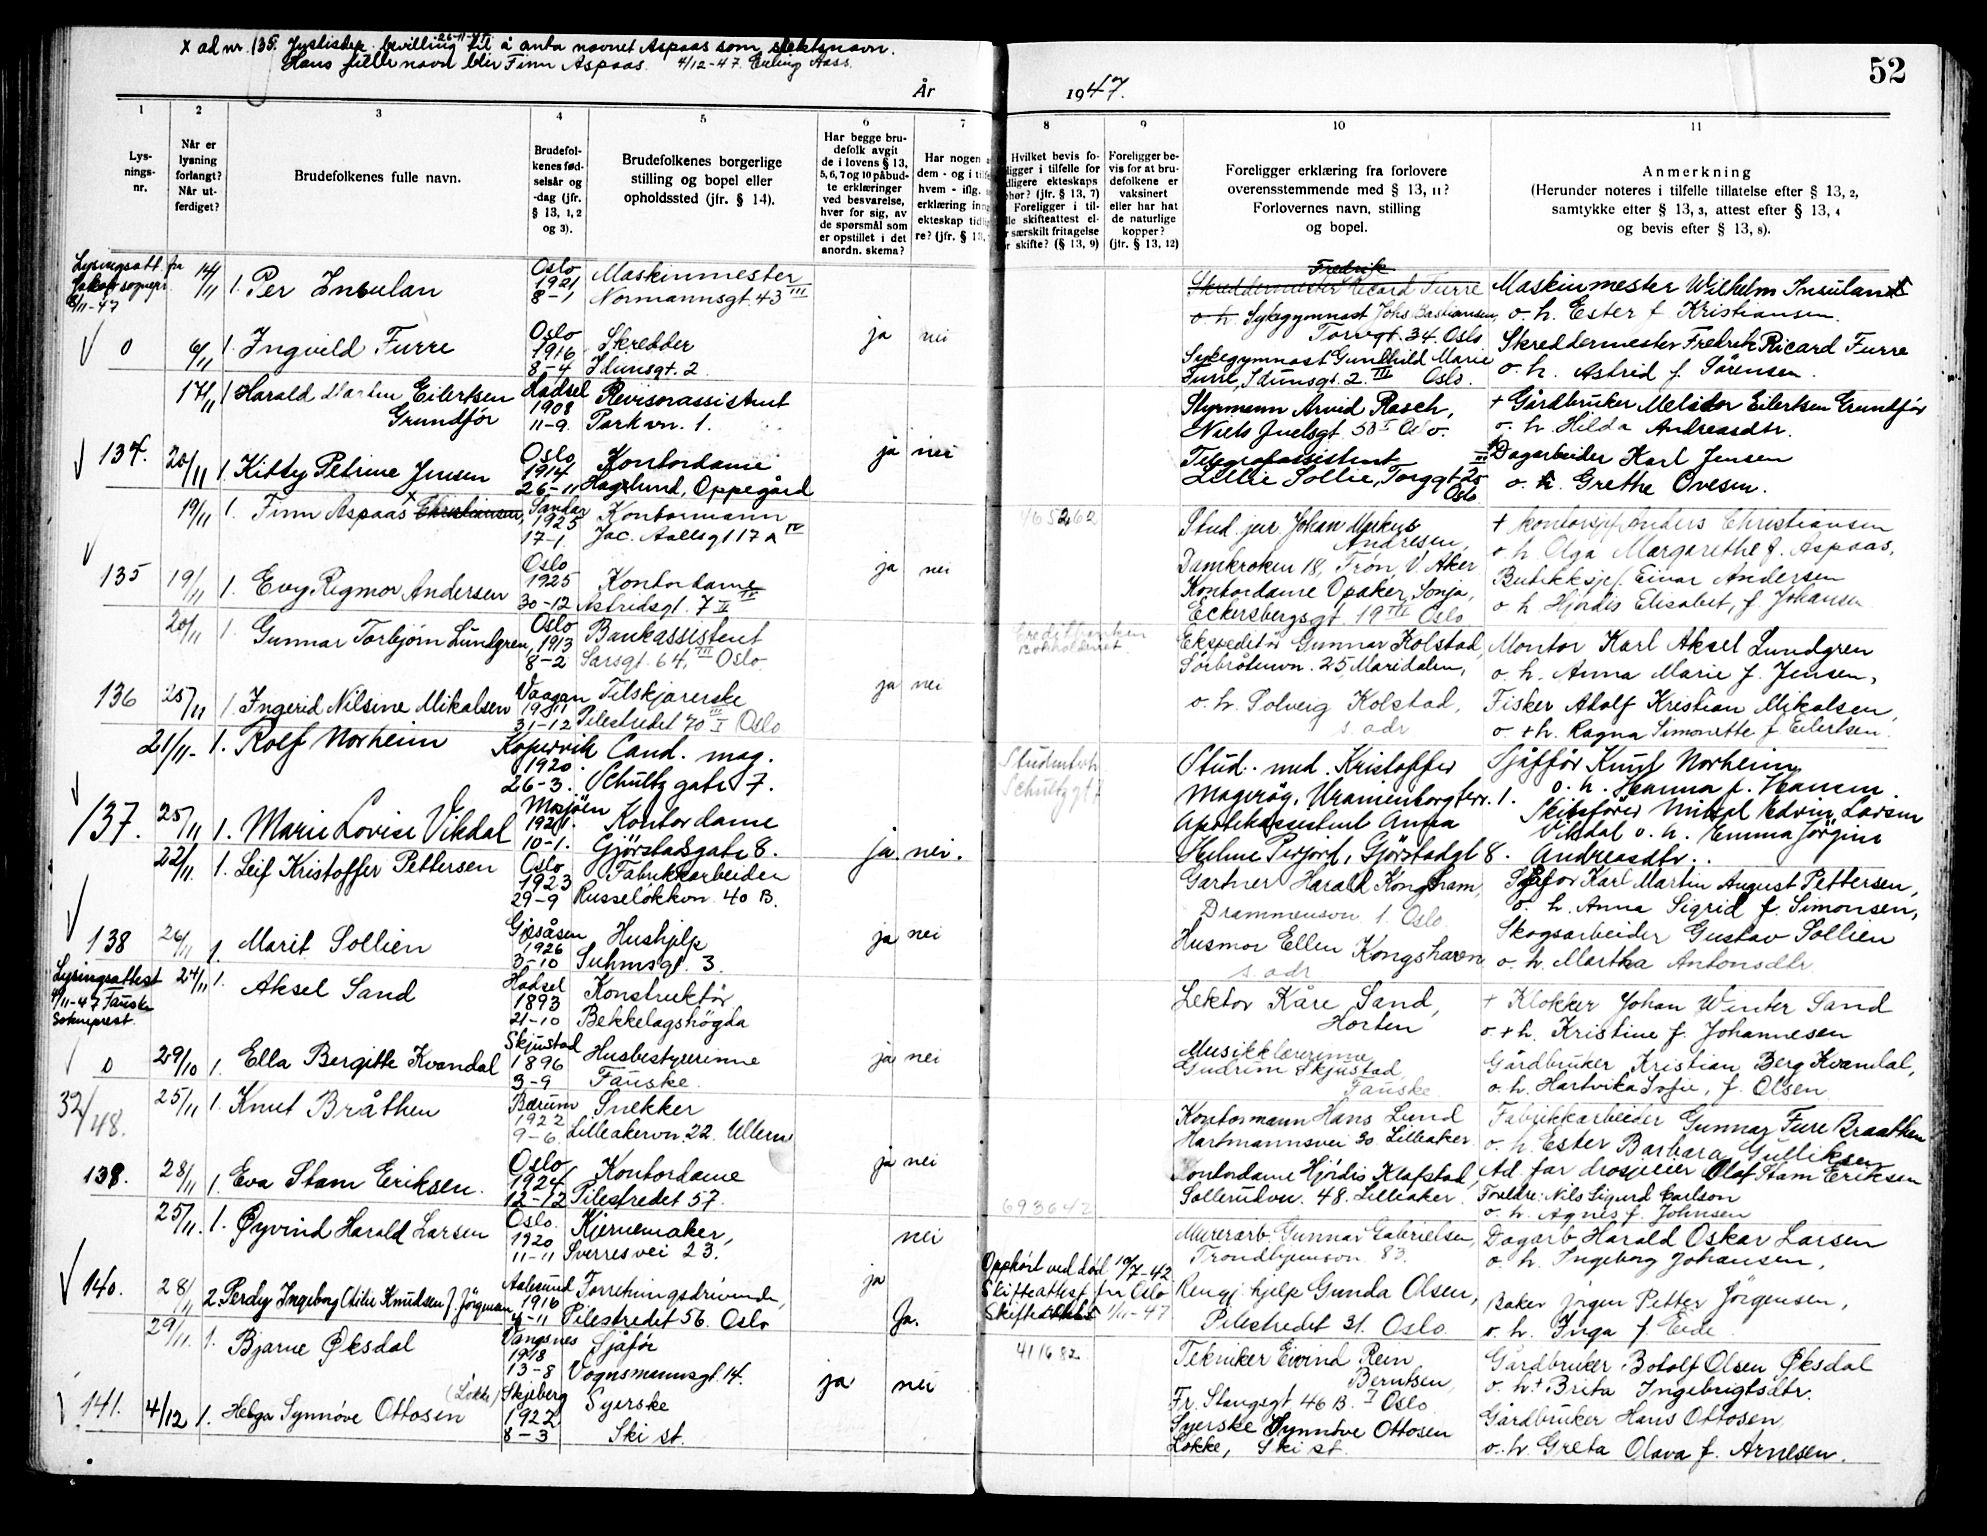 x ad nr. 135. Justisdep. bevilling 26-11-47 til å anta navnet Aspaas som slektsnavn.
Hans fulle navn blir Finn Aspaas. 4/12-47. Erling Aass.
52
År
1947.
1 2 3 4 5 6 7 8 9 10 11
Lys-
nings-
nr.
Når er
lysning
forlangt?
Når ut-
ferdiget?
Brudefolkenes fulle navn.
Brudefol-
kenes fød-
selsår og
-dag (jfr.
§ 13, 1, 2
og 3).
Brudefolkenes borgerlige
stilling og bopel eller
opholdssted (jfr. § 14).
Har begge bru-
defolk avgit
de i lovens § 13,
5, 6, 7 og 10 påbud-
te erklæringer
ved besvarelse,
hver for sig, av
de spørsmål som
er opstillet i det
anordn. skema?
Har nogen
dem - og i
hvem - iflg.
erklæring
ekteskap
re? (jfr. § 13,
Hvilket bevis fo-
ligger i tilfelle for
dligere ekteskaps
phør? (jfr. § 13, 7)
Foreligger i til-
lle skifteattest el-
r særskilt fritagelse
r skifte? (§ 13, 9)
Foreligger be-
vis for at bru-
defolkene er
vaksinert
eller har hat
de naturlige
kopper?
(jfr. § 13, 12)
Foreligger erklæring fra forlovere
overensstemmende med § 13, 11?
Forlovernes navn, stilling
og bopel.
Anmerkning
(Herunder noteres i tilfelle tillatelse efter § 13, 2,
samtykke efter § 13, 3, attest efter § 13, 4
og bevis efter § 13, 8).
Lysingsatt. fra
Jakob sognepr.
8/11-47
14/11 1. Per Insulan
Oslo
1921
8-1
Maskinmester
Normannsgt. 43 III
Skreddermester Fredrik Ricard Furre
o. h. Sykegymnast Johs Bastiansen,
Torvgt. 34. Oslo
Maskinmester Wilhelm Insulan
o. h. Ester f. Kristiansen.
0 6/11 1. Ingvild Furre
Oslo
1916
8-4
Skredder
Idunsgt. 2
ja nei
Sykegymnast Gunhild Marie
Furre, Idunsgt. 2 III Oslo.
Skreddermester Fredrik Ricard Furre
o. h. Astrid f. Sørensen.
17/11 1 Harald Martin Eilertsen
Grundfór
Hadsel
1908
11-9
Revisorassistent
Parkvn. 1.
Styrmann Arvid Rasch,
Niels Juelsgt. 50 I Oslo.
+ Gårdbruker Melidor Eilertsen Grundför
o. h. Hilda Andreasdtr.
134. 20/11 1 Kitty Petrine Jensen
Oslo
1914
26-11
Kontordame
Haglund, Oppegård
ja nei
Telegrafassistent
Lellie Sollie, Torggt 25 III
Oslo
Dagarbeider Karl Jensen
o. h. Grethe Ovesen.
19/11 1. Finn Aspaas x Christiansen,
Sandar
1925
17-1
Kontormann
Jac. Aallsgt 17 A IV
465262
Stud. jur. Johan Markus
Andresen,
Damkroken 18, Tron V. Aker
+ kontorsjef Anders Christiansen
o. h Olga Margarethe f. Aspaas.
135 19/11 1. Evy Rigmor Andersen
Oslo
1925
30-12
Kontordame
Astridsgt. 7 II
ja nei
Kontordame Opaker, Sonja,
Eckersbergsgt. 19 III Oslo
Butikksjef Einar Andersen
o h Hjördis Elisabet, f. Johansen
20/11 1. Gunnar Torbjörn Lundgren,
Oslo
1913
8-2
Bankassistent
Sarsgt. 64, III Oslo.
Creditbanken
Bokholderiet
Ekspeditör Gunnar Kolstad,
Sörbråtenvn. 25 Maridalen,
Montor Karl Aksel Lundgren
o. h. Anna Marie f. Jensen,
136 25/11 1. Ingerid Nilsine Mikalsen
Vaagan
1911
31-12
Tilskjærerske
Pilestredet 70 III I Oslo
ja nei
o. h. Solveig Kolstad,
s. adr
Fisker Adolf Kristian Mikalsen,
o. + h. Ragna Simonette f Eilertsen.
21/11- 1. Rolf Norheim
Kopervik
1920.
26-3.
Cand. mag.
Schultz gate 7.
Studenterh.
Schultz gt 7
Stud. med. Kristoffer
Mageröy, Uranienborgterr. 1.
Sjåfför Knut Norheim
o. h. Hanna f. Hansen.
137. 25/11 1. Marie Lovise Vikdal
Mosjöen
1921.
10-1.
Kontordame
Gjörstadsgate 8.
ja nei.
Apotekassistent Anna
Helene Perford, Gjörstadgt 8.
Skibsförer Mikal Edvin Larsen
Vikdal o. h. Emma Jörgine
Andreasdtr..
22/11. 1. Leif Kristoffer Pettersen
Oslo
1923
29-9
Fabrikkarbeider
Russeløkkvn. 40 B.
Gartner Harald Kongsham,
Drammensvn 1. Oslo
Sjåför Karl Martin August Pettersen,
o. h. Anna Sigrid f. Simonsen,
138 26/11 1. Marit Sollien
Gjesåsen
1926
3-10
Hushjelp
Suhmsgt. 3.
ja nei
Husmor Ellen Kongshavn
s. adr
Skogsarbeider Gustav Sollien
o. h. Martha Antonsdtr.
Lysingsattest
4/11-47 Fauske
Sokneprest.
24/11 1. Aksel Sand
Hadsel
1893
21-10
Konstruktör
Bekkelagshögda
Lektor Kåre Sand,
Horten
+ Klokker Johan Winter Sand
o. + h. Kristine f. Johannesen
0 29/10 1. Ella Bergitte Kvandal
Skjustad
1896
3-9
Husbestyrerinne
Fauske.
ja nei
Musikklærerinne
Gudrun Skjustad,
Fauske
Gårdbruker Kristian Berg Kvandal,
o. h. Hartvika Sofie, f. Olsen
32/48. 25/11 1. Knut Bråthen
Bærum
1922
9-6
Snekker
Lilleakervn. 22. Ullern
Kontormann Hans Lund
Hartmannsvei 30. Lilleaker
Fabrikkarbeider Gunnar Fure Braathen
o. h. Ester Barbara Gulliksen
139. 28/11 1. Eva Stam Eriksen.
Oslo
1924
12-12
Kontordame
Pilestredet 57.
ja nei
Kontordame Hjördis Klafstad,
Sollerudvn. 48. Lilleaker.
693642
Ad. far drosjeeier Olaf Stam Eriksen
Foreldre: Nils Sigurd Carlson
o. h. Agnes f. Johnsen
25/11. 1. Øyvind Harald Larsen
Oslo.
1920
11-11
Kjernemaker,
Sverres vei 23.
nei
Murerarb. Gunnar Gabrielsen,
Trondhjemsvn 83.
Dagarb Harald Oskar Larsen
o h. Ingeborg Johansen,
140. 28/11 2. Perdy Ingeborg Otilie Knudsen f. Jörgensen
Aalesund
1916
4-11
Forretningsdrivende,
Pilestredet 56. Oslo
ja Ja.
Opphört ved död 19/7-42
Skifteattest fra Oslo
Skifterett 1/11-47
Rengj. hjelp Gunda Olsen,
Pilestredet 31. Oslo.
Baker Jörgen Petter Jörgensen,
o. h. Inga f. Eide
29/11. 1. Bjarne Øksdal
Vangsnes
1918
13-8
Sjåför
Vognsmannsgt. 14.
411682
Tekniker Eivind Rein
Berntsen,
Fr. Stangsgt 46 B. I Oslo.
Gårdbruker Botolf Olsen Øksdal
o. h + Brita Ingebrigtsdtr.
141. 4/12 1. Helga Synnöve Ottosen (Løkke)
Skjeberg
1922
8-3
Syerske
Ski st.
ja nei
Syerske Synnöve Ottosen
Løkke, Ski st.
Gårdbruker Hans Ottosen
o. h. Greta Olava f. Arnesen.